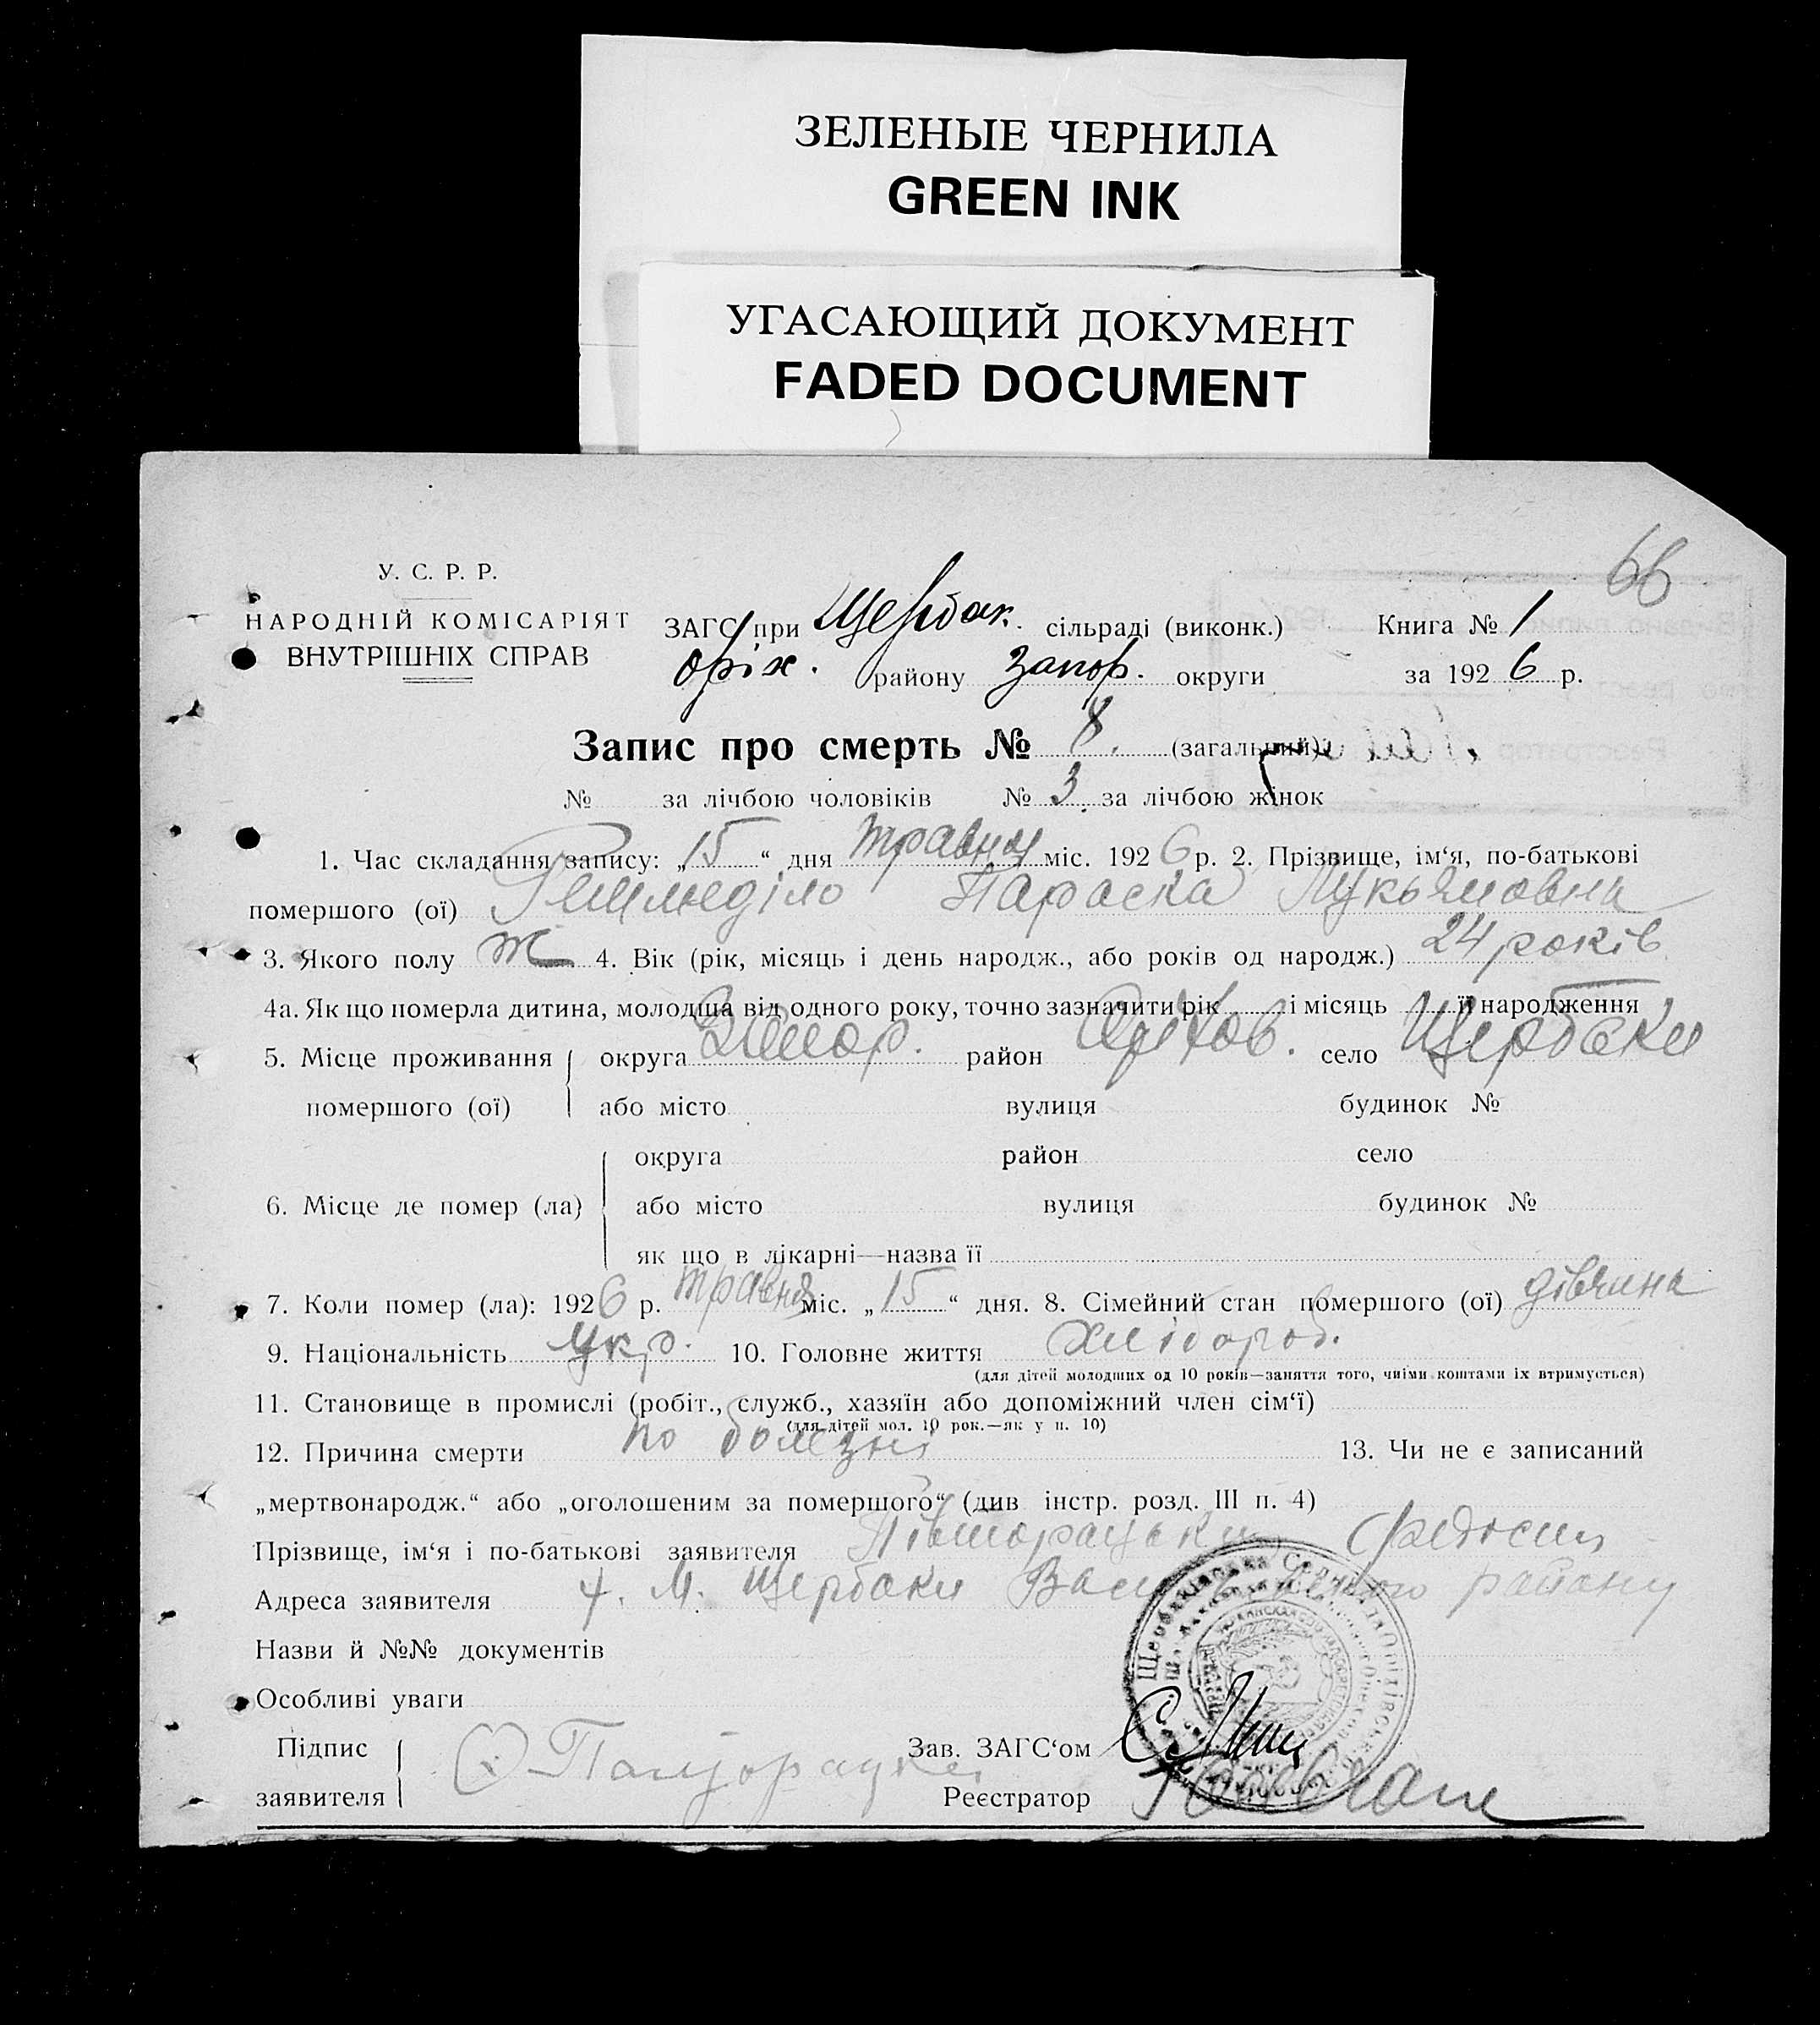 ЗЕЛЕНЫЕ ЧЕРНИЛА
GREEN INK
УГАСАЮЩИЙ ДОКУМЕНТ
FADED DOCUMENT
66
У. С. Р. Р.
НАРОДНІЙ КОМІСАРІЯТ
ВНУТРІШНІХ СПРАВ
ЗАГС при Щербак. сільраді (виконк.) Книга № 1
Оріх. району Запор. округи за 1926 р.
Запис про смерть № 8. (загальний)
№ за лічбою чоловіків № 3 за лічбою жінок
1. Час складання запису: „15“ дня травня міс. 1926 р. 2. Прізвище, ім‘я, по-батькові
помершого (ої) Параска Лукьяновна
3. Якого полу Ж 4. Вік (рік, місяць і день народж., або років од народж.) 24 років
4а. Як що померла дитина, молодша від одного року, точно зазначити рік і місяць її народження
5. Місце проживання помершого (ої) округа Запор. район Оріхов. село Щербаки
або місто вулиця будинок №
6. Місце де помер (ла) округа район село
або місто вулиця будинок №
як що в лікарні—назва її
7. Коли помер (ла): 1926 р. травня міс. „15“ дня. 8. Сімейний стан помершого (ої) дівчина
9. Національність Укр. 10. Головне життя Хлібороб.
(для дітей молодших од 10 років—заняття того, чиїми коштами їх втримується)
11. Становище в промислі (робіт., служб., хазяїн або допоміжний член сім‘ї)
(для дітей мол. 10 рок.—як у п. 10)
12. Причина смерти по болезні 13. Чи не є записаний
„мертвонародж.“ або „оголошеним за помершого“ (див інстр. розд. III п. 4)
Прізвище, ім‘я і по-батькові заявителя Федосий
Адреса заявителя Щербаки району
Назви й №№ документів
Особливі уваги
Підпис заявителя
Зав. ЗАГС‘ом
Реєстратор